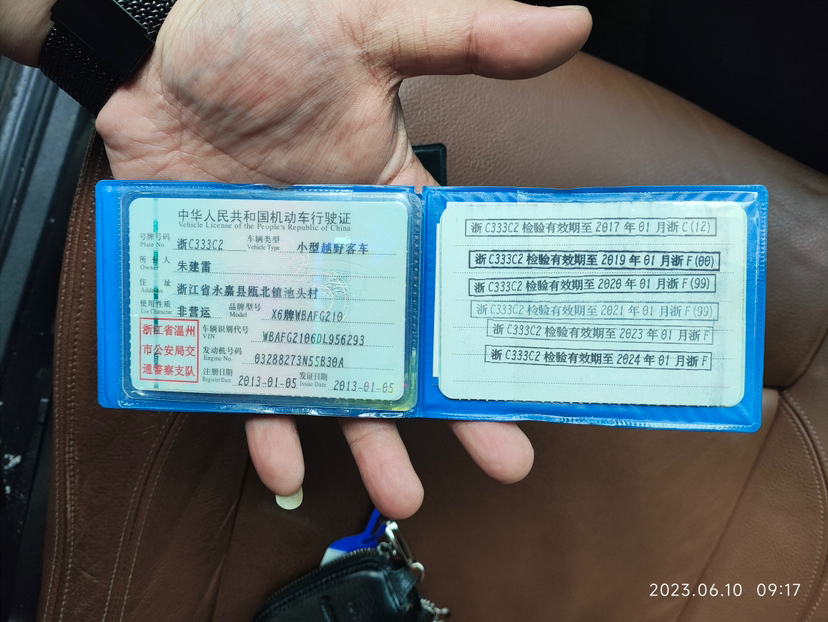 中华人民共和国机动车行驶证
Vehicle License of the People's Republic of China
号牌号码 浙C333C2 车辆类型 小型越野客车
Plate No. Vehicle Type
所有人 朱建雷
Owner
住址 浙江省永嘉县瓯北镇池头村
Address
使用性质 非营运 品牌型号 X6牌WBAFG210
Use Character Model
浙江省温州
市公安局交
通警察支队
车辆识别代号 WBAFG2106DL956293
VIN
发动机号码 03288273N55B30A
Engine No.
注册日期 2013-01-05 发证日期 2013-01-05
Register Date Issue Date
浙C333C2 检验有效期至 2017 年 01 月浙C(12)
浙 C333C2 检验有效期至 2019 年 01 月浙 F(00)
浙 C333C2 检验有效期至 2020 年 01 月浙 F(99)
浙 C333C2 检验有效期至 2021 年 01 月浙 F(99)
浙 C333C2 检验有效期至 2023 年 01 月浙 F
浙 C333C2 检验有效期至 2024 年 01 月浙 F
2023.06.10 09:17